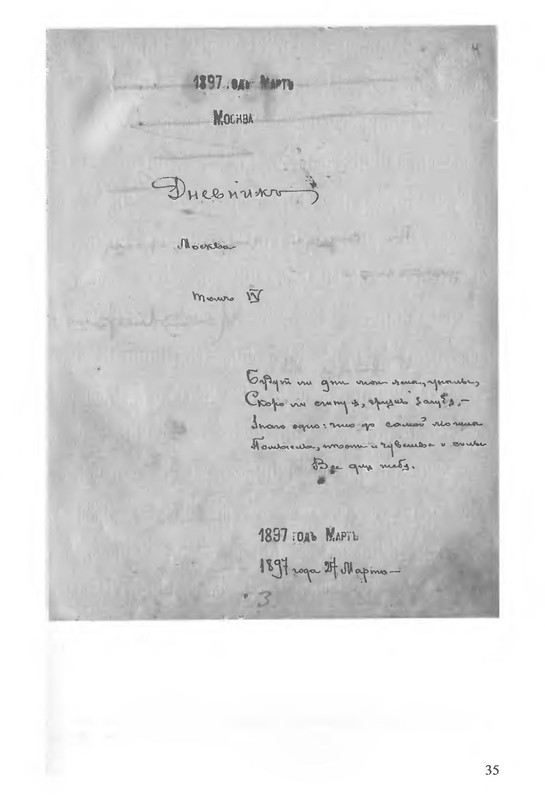 4
1897 годъ Мартъ
Москва
Дневникъ
Москва
Томъ IV
Будут ли дни мои ясны, унылы,
Скоро ли сгину я, жизнь загубя,—
Знаю одно: что до самой могилы
Помыслы, и чувства и силы
Все для тебя.
1897 годъ Мартъ
1897 года Марта—
3
35